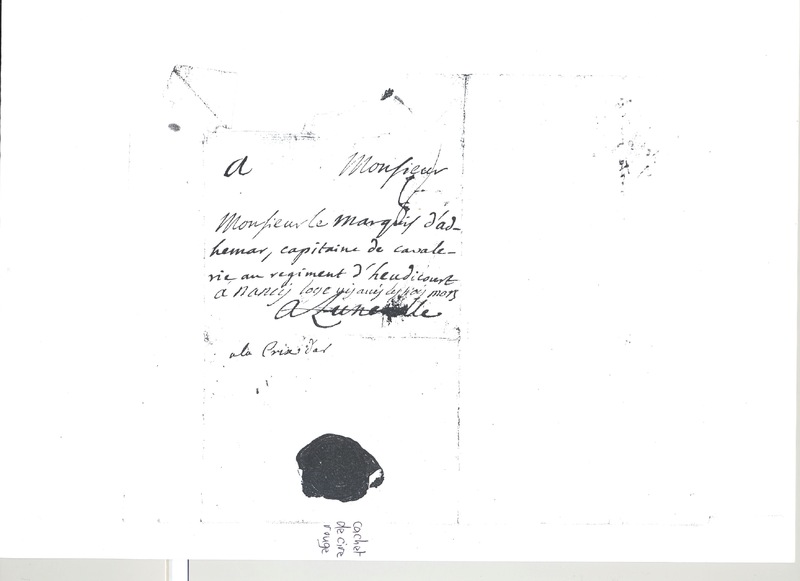 a Monsieur
Monsieur le marquis d'ad-
hemar, capitaine de cavale-
rie au regiment d'heudicourt
a nancij loge vis avis les trois mors
A Luneville
a la Croix d'or
cachet
de cire
rouge